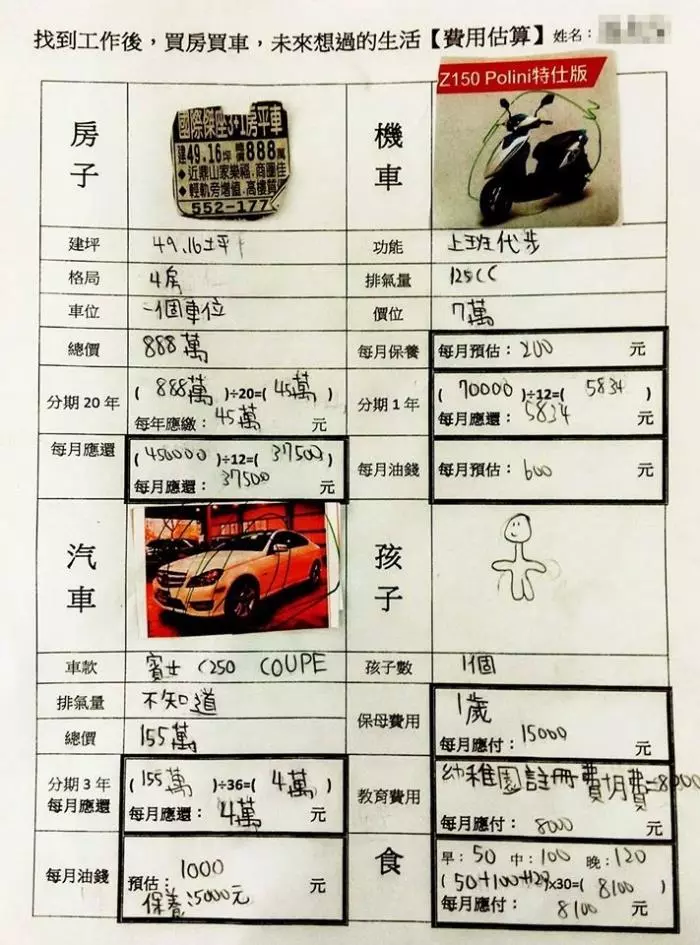 找到工作後，買房買車，未來想過的生活【費用估算】姓名：
房子
國際傑座3+1房平車
建49.16坪 價888萬
◆近鼎山家樂福.商圈佳
◆輕軌旁增值.高樓質
552-177
機車
Z150 Polini特仕版
建坪 49.16坪
功能 上班代步
格局 4房
排氣量 125CC
車位 一個車位
價位 7萬
總價 888萬
每月保養 每月預估：200 元
分期20年 (888萬)÷20=(45萬)
每年應繳：45萬 元
分期1年 (70000)÷12=(5834)
每月應還：5834 元
每月應還 (450000)÷12=(37500)
每月應還：37500 元
每月油錢 每月預估：600 元
汽車
孩子
車款 賓士 C250 COUPE
孩子數 1個
排氣量 不知道
總價 155萬
保母費用 1歲
每月應付：15000 元
分期3年 (155萬)÷36=(4萬)
每月應還 每月應還：4萬 元
教育費用 幼稚園註冊費月費=8000
每月應付：8000 元
每月油錢 1000
預估： 元
保養:5000元
食
早：50 中：100 晚：120
(50+100+120)x30=(8100)
每月應付：8100 元